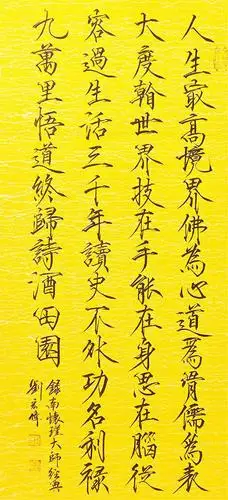 人生最高境界佛為心道為骨儒為表
大度翰世界技在手能在身思在腦從
容過生活三千年讀史不外功名利祿
九萬里悟道終歸詩酒田園
錄南懷瑾大師經典
劉